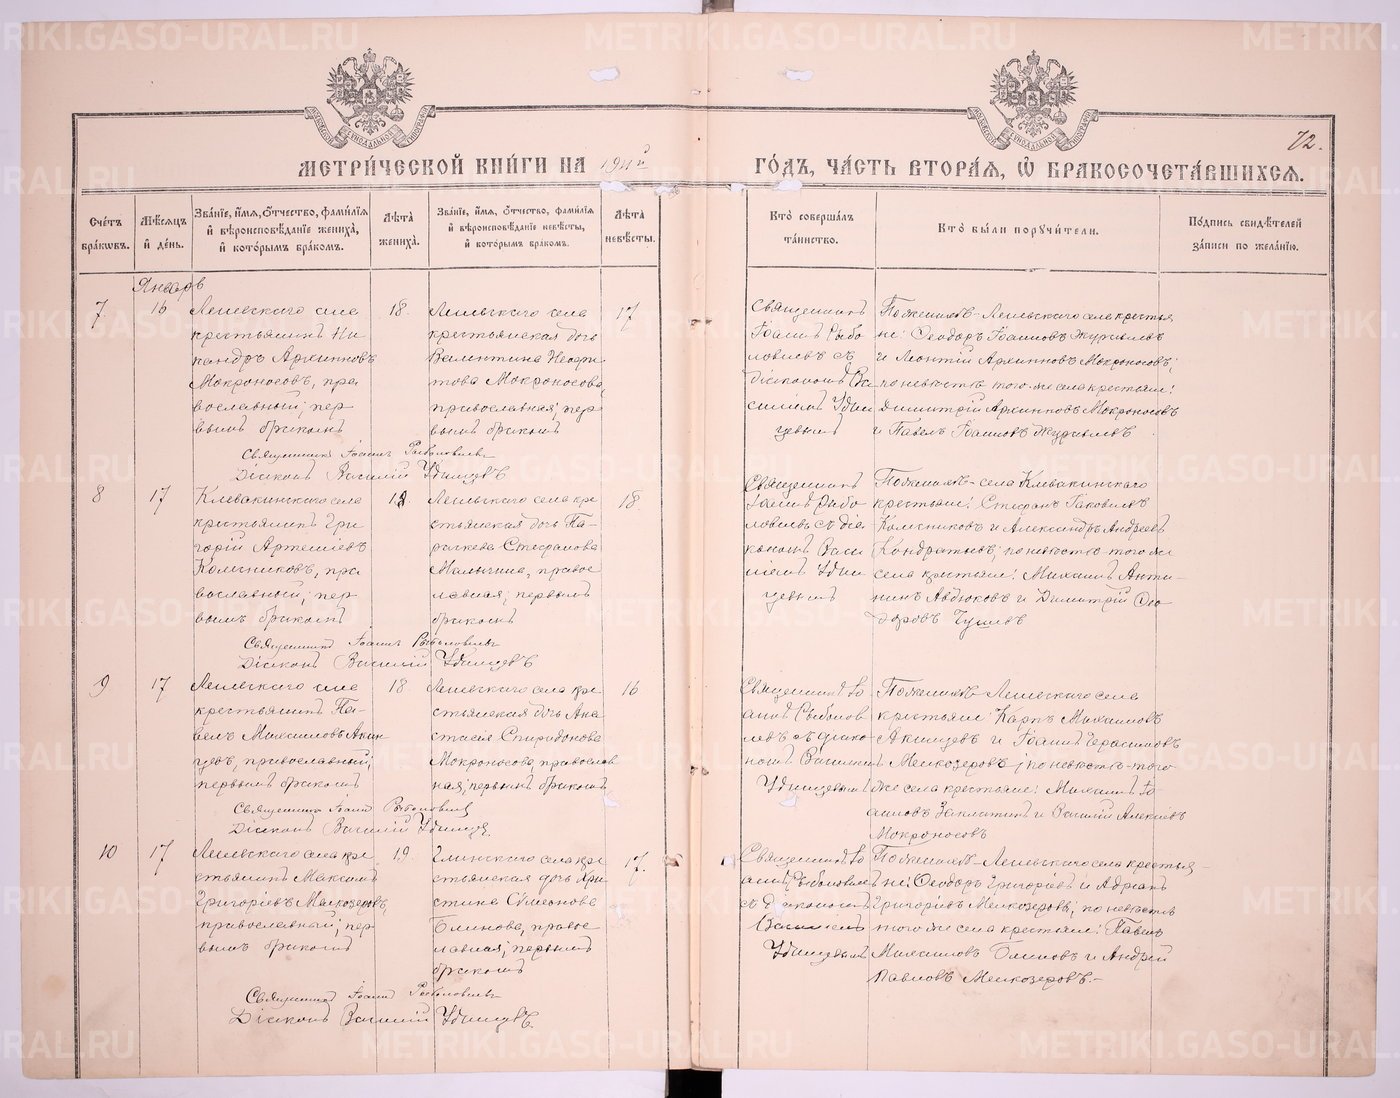 72.
МЕТРИ́ЧЕСКОЙ КНИ́ГИ НА 1911й ГО́ДЪ, ЧА́СТЬ ВТОРА́Я, Ѡ БРАКОСОЧЕТА́ВШИХСЯ.
Сче́тъ бра́кѡвъ.
Мѣ́сяцъ и҆ де́нь.
Зва́нїе, и҆́мя, ѻ҆́тчество, фами́лїя
и҆ вѣроисповѣ́данїе жениха̀,
и҆ кото́рымъ бра́комъ.
Лѣ́та жениха̀.
Зва́нїе, и҆́мя, ѻ҆́тчество, фами́лїя
и҆ вѣроисповѣ́данїе невѣ́сты,
и҆ кото́рымъ бра́комъ.
Лѣ́та невѣ́сты.
Кто̀ соверша́лъ
та́инство.
Кто̀ бы́ли поручи́тели.
По́дпись свидѣ́телей
за́писи по жела́нїю.
Январь
7
16
Леневскаго села
крестьянинъ Ни-
кандръ Архиповъ
Мокроносовъ, пра-
вославный; пер-
вымъ бракомъ
18.
Леневскаго села
крестьянская дочь
Валентина Неофи-
това Мокроносова,
православная; пер-
вымъ бракомъ
17
Священникъ
Іоаннъ Рыбо-
ловлевъ съ
діакономъ Ва-
силіемъ Удин-
цевымъ
По женихѣ- Леневскаго села крестья
не: Ѳеодоръ Іоанновъ Журавлевъ
и Леонтій Архиповъ Мокроносовъ;
по невѣстѣ того-же села крестьяне:
Димитрій Архиповъ Мокроносовъ
и Павелъ Іоанновъ Журавлевъ
Священникъ Іоаннъ Рыболовлевъ
Діаконъ Василій Удинцевъ
8
17
Клевакинскаго села
крестьянинъ Гри-
горій Артеміевъ
Колесниковъ, пра-
вославный; пер-
вымъ бракомъ
18.
Леневскаго села кре-
стьянская дочь Па-
раскева Стефанова
Малыгина, право-
славная; первымъ
бракомъ
18
Священникъ
Іоаннъ Рыбо-
ловлевъ съ діа-
кономъ Васи-
ліемъ Удин-
цевымъ
По женихѣ- села Клевакинскаго
крестьяне: Стефанъ Іаковлевъ
Колесниковъ и Александръ Андреевъ
Кондратьевъ; по невѣстѣ- того же
села крестьяне: Михаилъ Анти-
пинъ Авдюковъ и Димитрій Ѳео-
доровъ
Священникъ Іоаннъ Рыболовлевъ
Діаконъ Василій Удинцевъ
9
17
Леневскаго села
крестьянинъ Па-
велъ Михаиловъ Акин-
цевъ, православный;
первымъ бракомъ
18.
Леневскаго села кре-
стьянская дочь Ана-
стасія Спиридонова
Мокроносова, православ
ная; первымъ бракомъ
16
Священникъ Іо-
аннъ Рыболов-
левъ съ діако-
номъ Василіемъ
Удинцевымъ
По женихѣ- Леневскаго села
крестьяне: Карпъ Михаиловъ
Акинцевъ и Іоаннъ Герасимовъ
Мелкозеровъ; по невѣстѣ- того-
же села крестьяне: Михаилъ Іо-
анновъ Заплатинъ и Василій Алексѣевъ
Мокроносовъ
Священникъ Іоаннъ Рыболовлевъ
Діаконъ Василій Удинцевъ.
10
17
Леневскаго села кре-
стьянинъ Максимъ
Григоріевъ Мелкозеровъ,
православный; пер-
вымъ бракомъ
19.
Глинскаго села кре-
стьянская дочь Хри-
стина Сѵмеонова
Блинова, право-
славная; первымъ
бракомъ
17.
Священникъ Іо-
аннъ Рыболовлевъ
съ діакономъ
Василіемъ
Удинцевымъ
По женихѣ- Леневскаго села крестья-
не: Ѳеодоръ Григоріевъ и Адріанъ
Григоріевъ Мелкозеровы; по невѣстѣ
того-же села крестьяне: Павелъ
Михаиловъ Блиновъ и Андрей
Павловъ Мелкозеровъ.-
Священникъ Іоаннъ Рыболовлевъ
Діаконъ Василій Удинцевъ.
METRIKI.GASO-URAL.RU